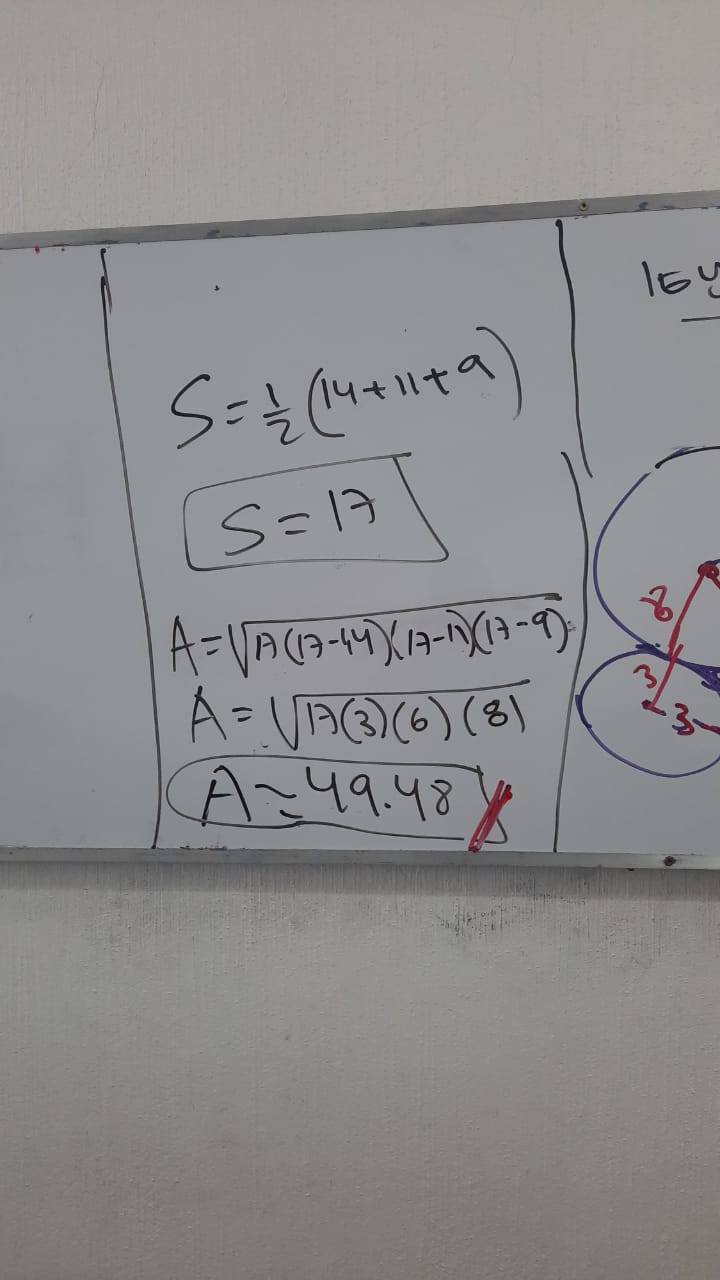 S=½(14+11+9)
S=17
A=√17(17-14)(17-11)(17-9)
A=√17(3)(6)(8)
A≃49.48
8
3
3